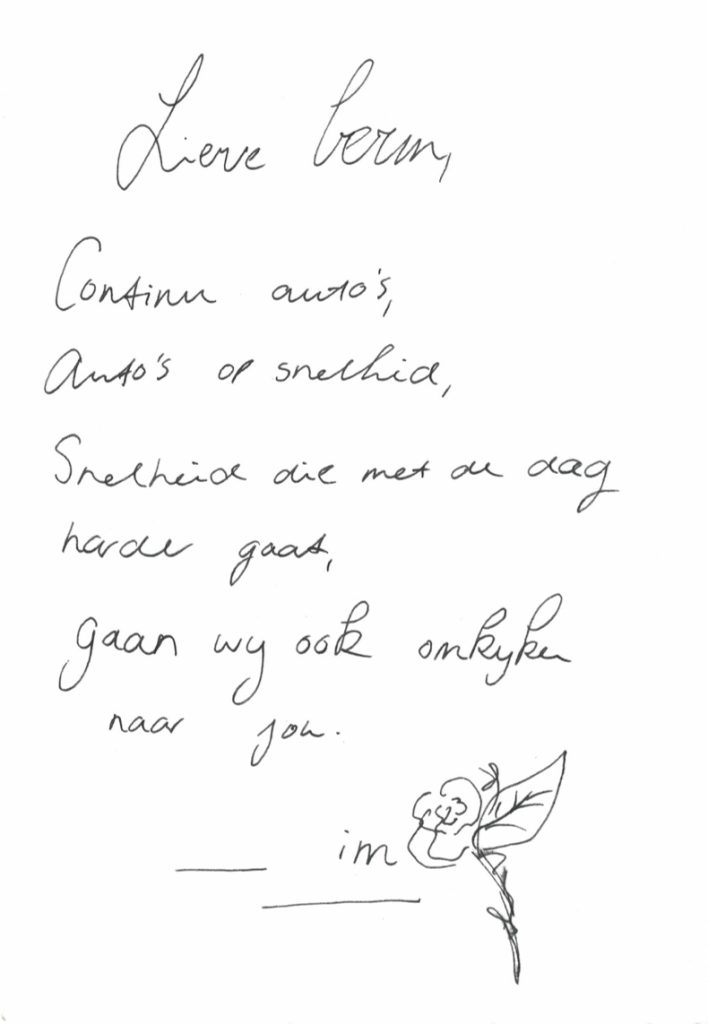 Lieve berm,
Continu auto's,
Auto's op snelhid,
Snelheid die met de dag
harder gaat,
gaan wij ook omkijken
naar jou.
im